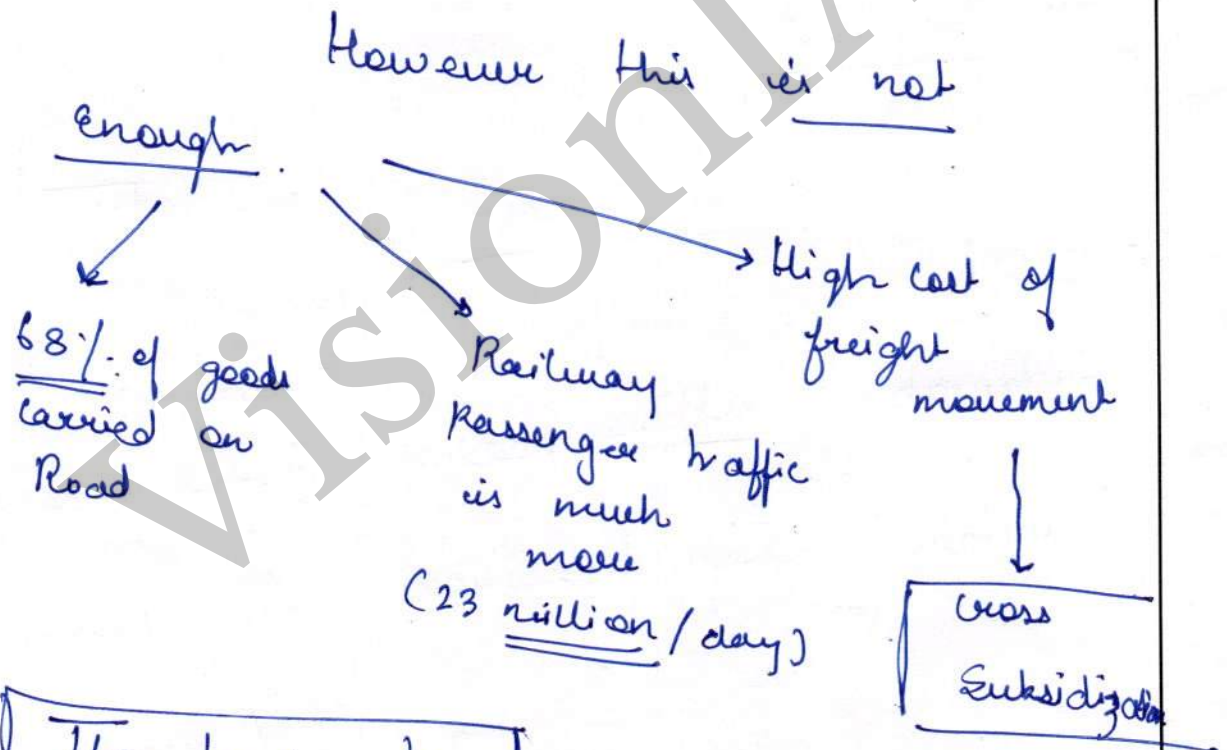 However this is not
Enough.
68% of goods
carried on
Road
Railway
Passenger traffic
is much
more
(23 million / day)
High cost of
freight
movement
Cross
Subsidization